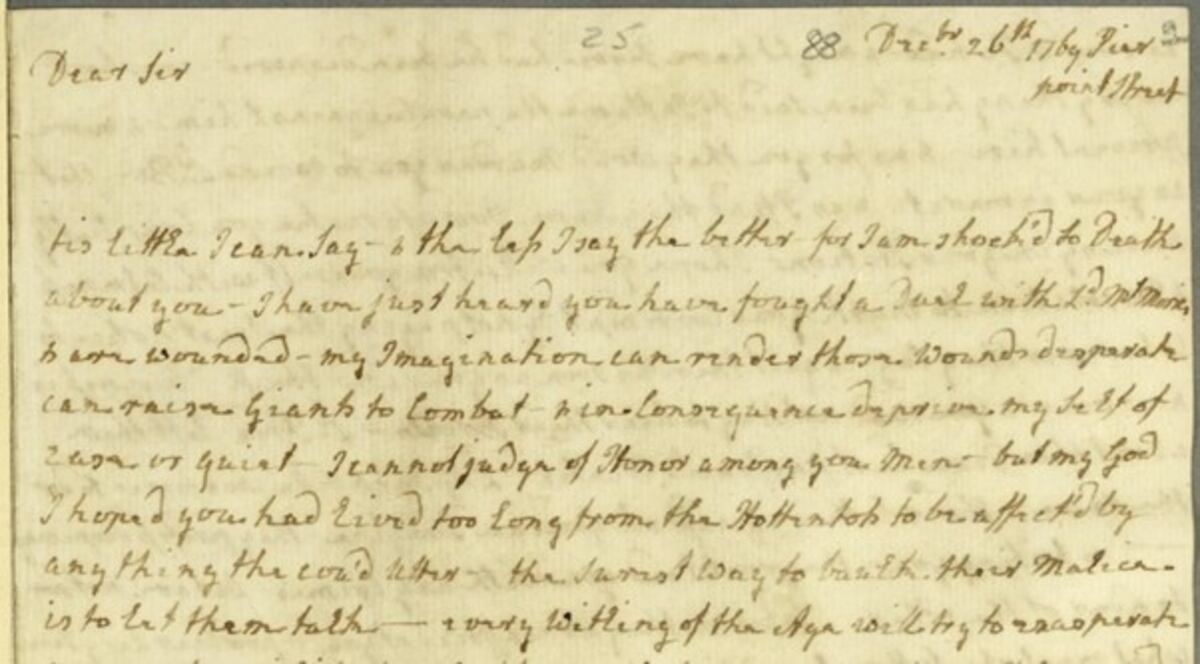 25 88 Decbr. 26th 1769 Pier
point Street
Dear Sir
tis little I can Say - & the less I say the better - for I am shock'd to Death
about you - I have just heard you have fought a Duel with Ld. Mt Morres
& are wounded - my Imagination can render those Wounds desperate
can raise Giants to Combat - & in Consequence deprive my Self of
ease or quiet - I cannot judge of Honor among you Men - but my God
I hoped you had Lived too Long from the Hottentots to be affect'd by
anything the cou'd Utter - the Surest Way to baulk their Malice
is to Let them talk — every Witling of the Age will try to exasperate